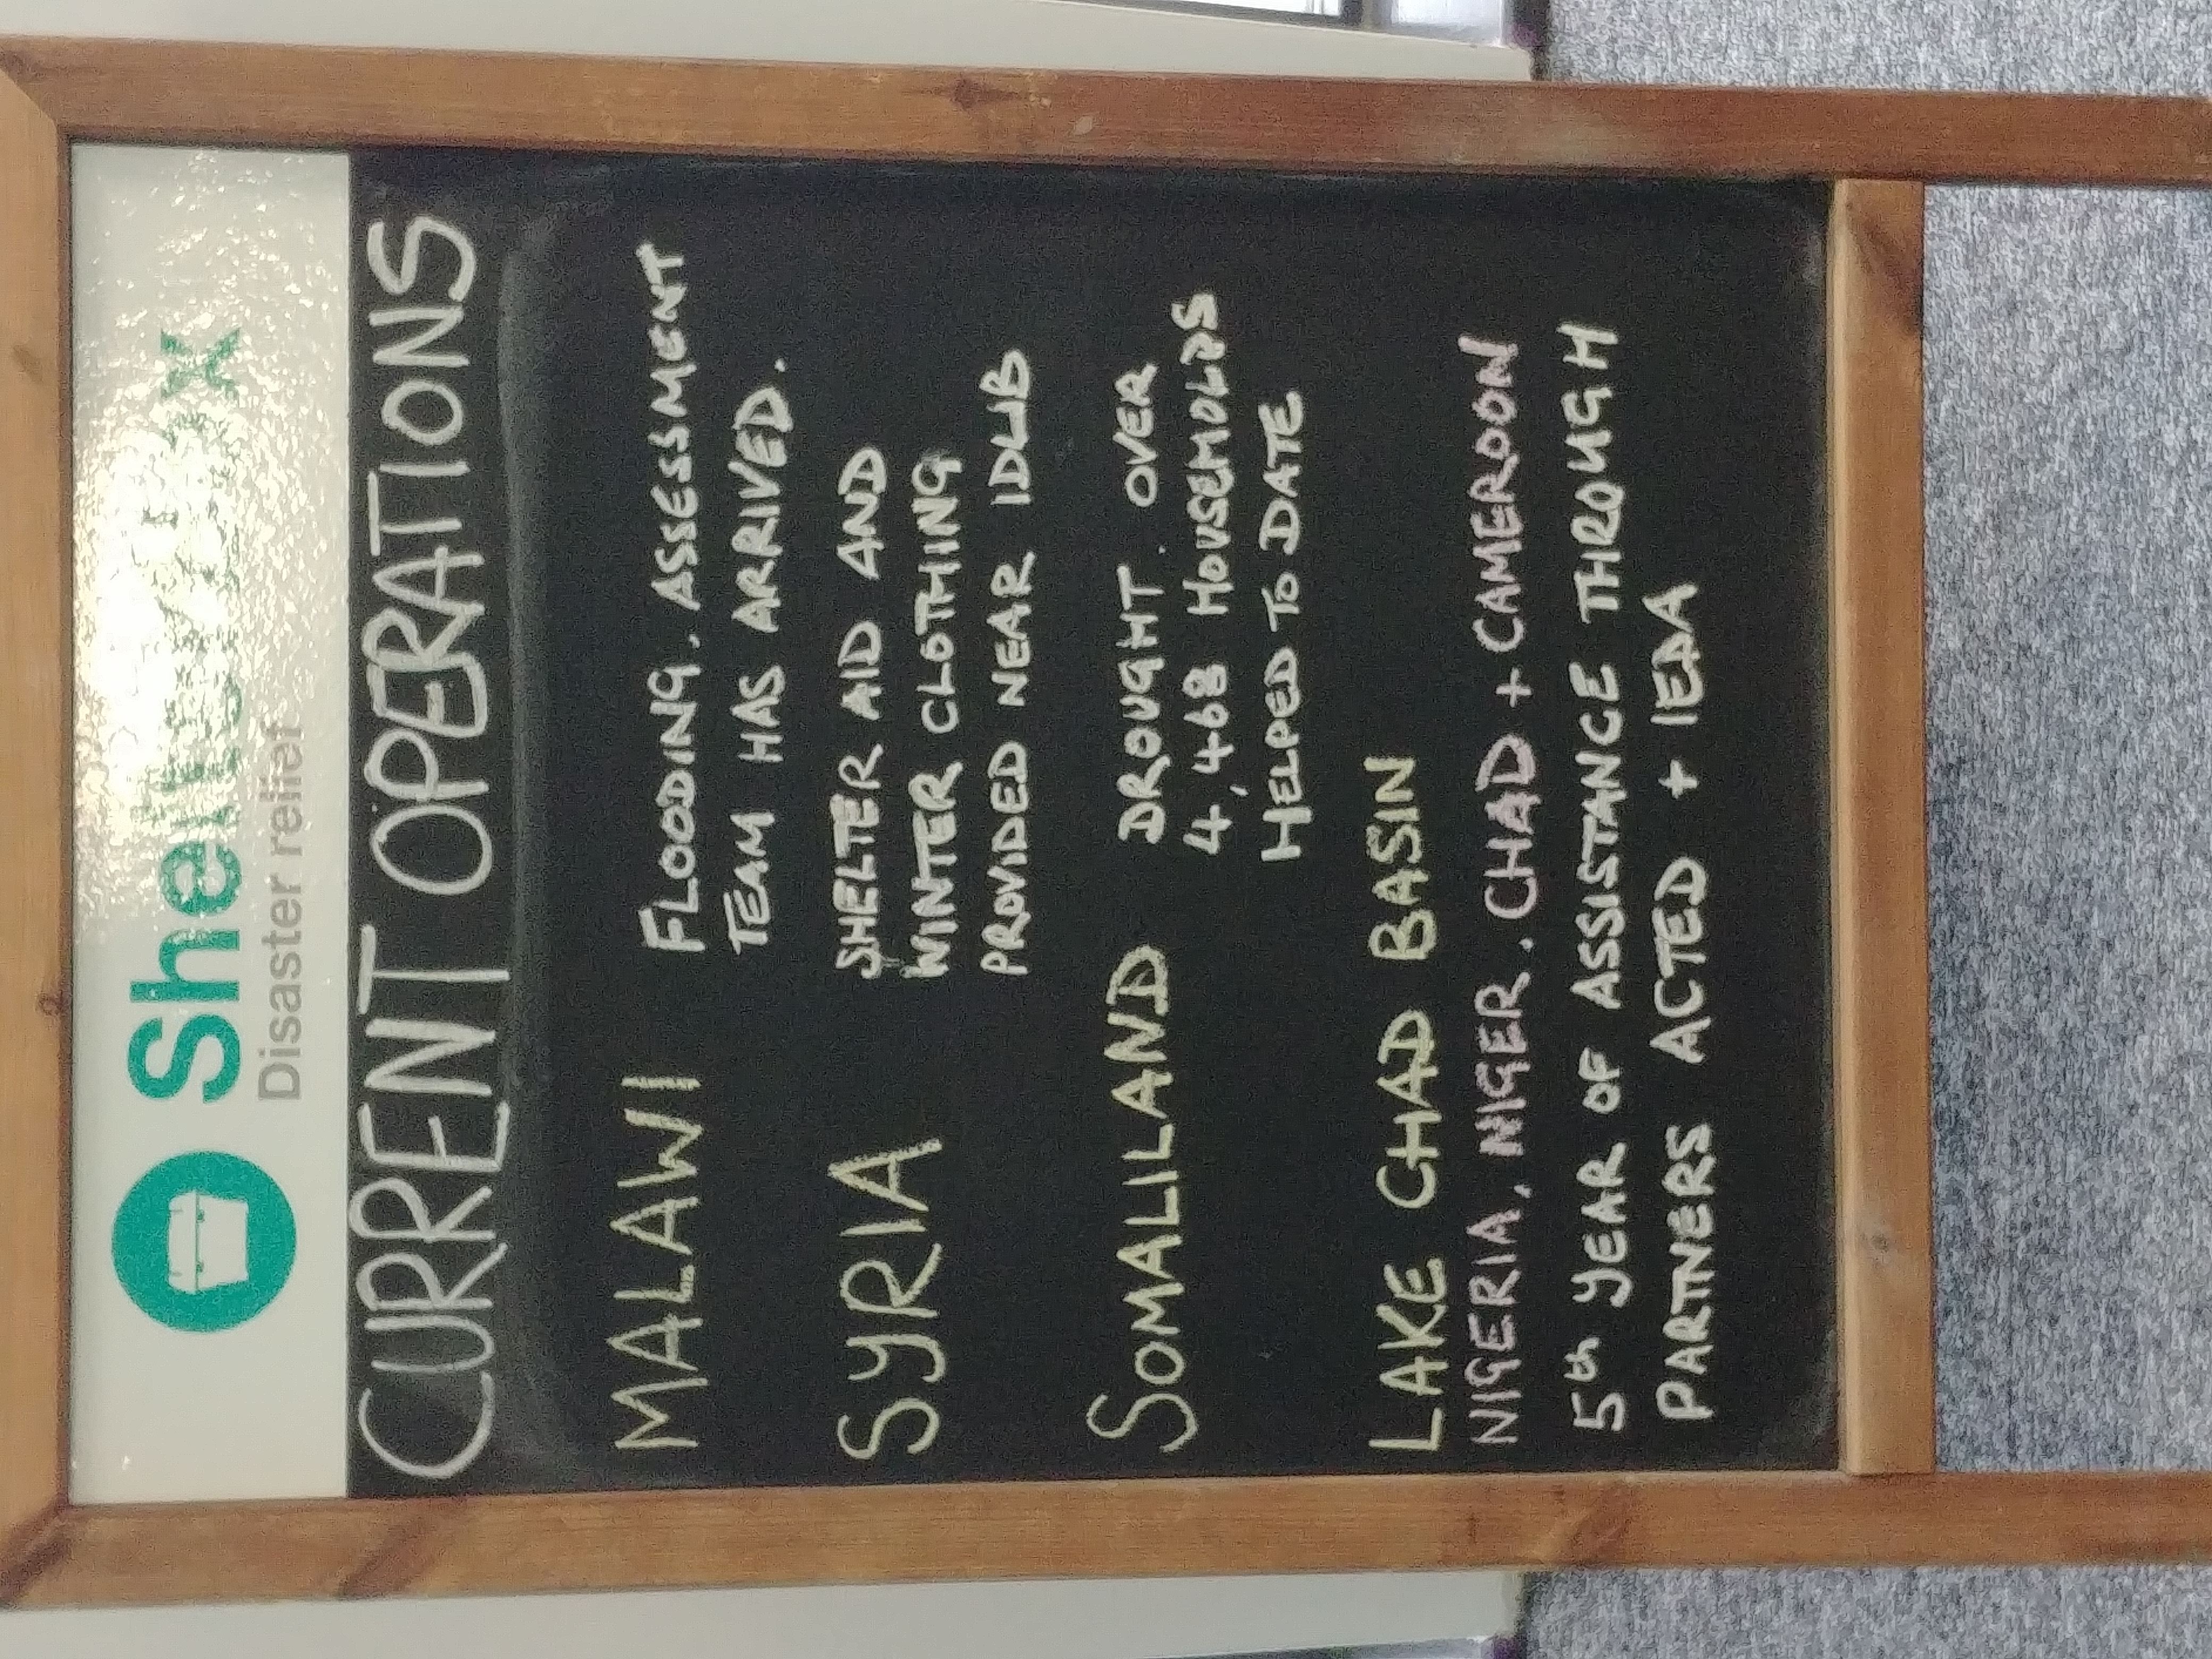 ShelterBox
Disaster relief
CURRENT OPERATIONS
MALAWI
FLOODING. ASSESSMENT
TEAM HAS ARRIVED.
SYRIA
SHELTER AID AND
WINTER CLOTHING
PROVIDED NEAR IDLIB
SOMALILAND
DROUGHT. OVER
4,468 HOUSEHOLDS
HELPED TO DATE
LAKE CHAD BASIN
NIGERIA, NIGER, CHAD + CAMEROON
5th YEAR OF ASSISTANCE THROUGH
PARTNERS ACTED + IEDA